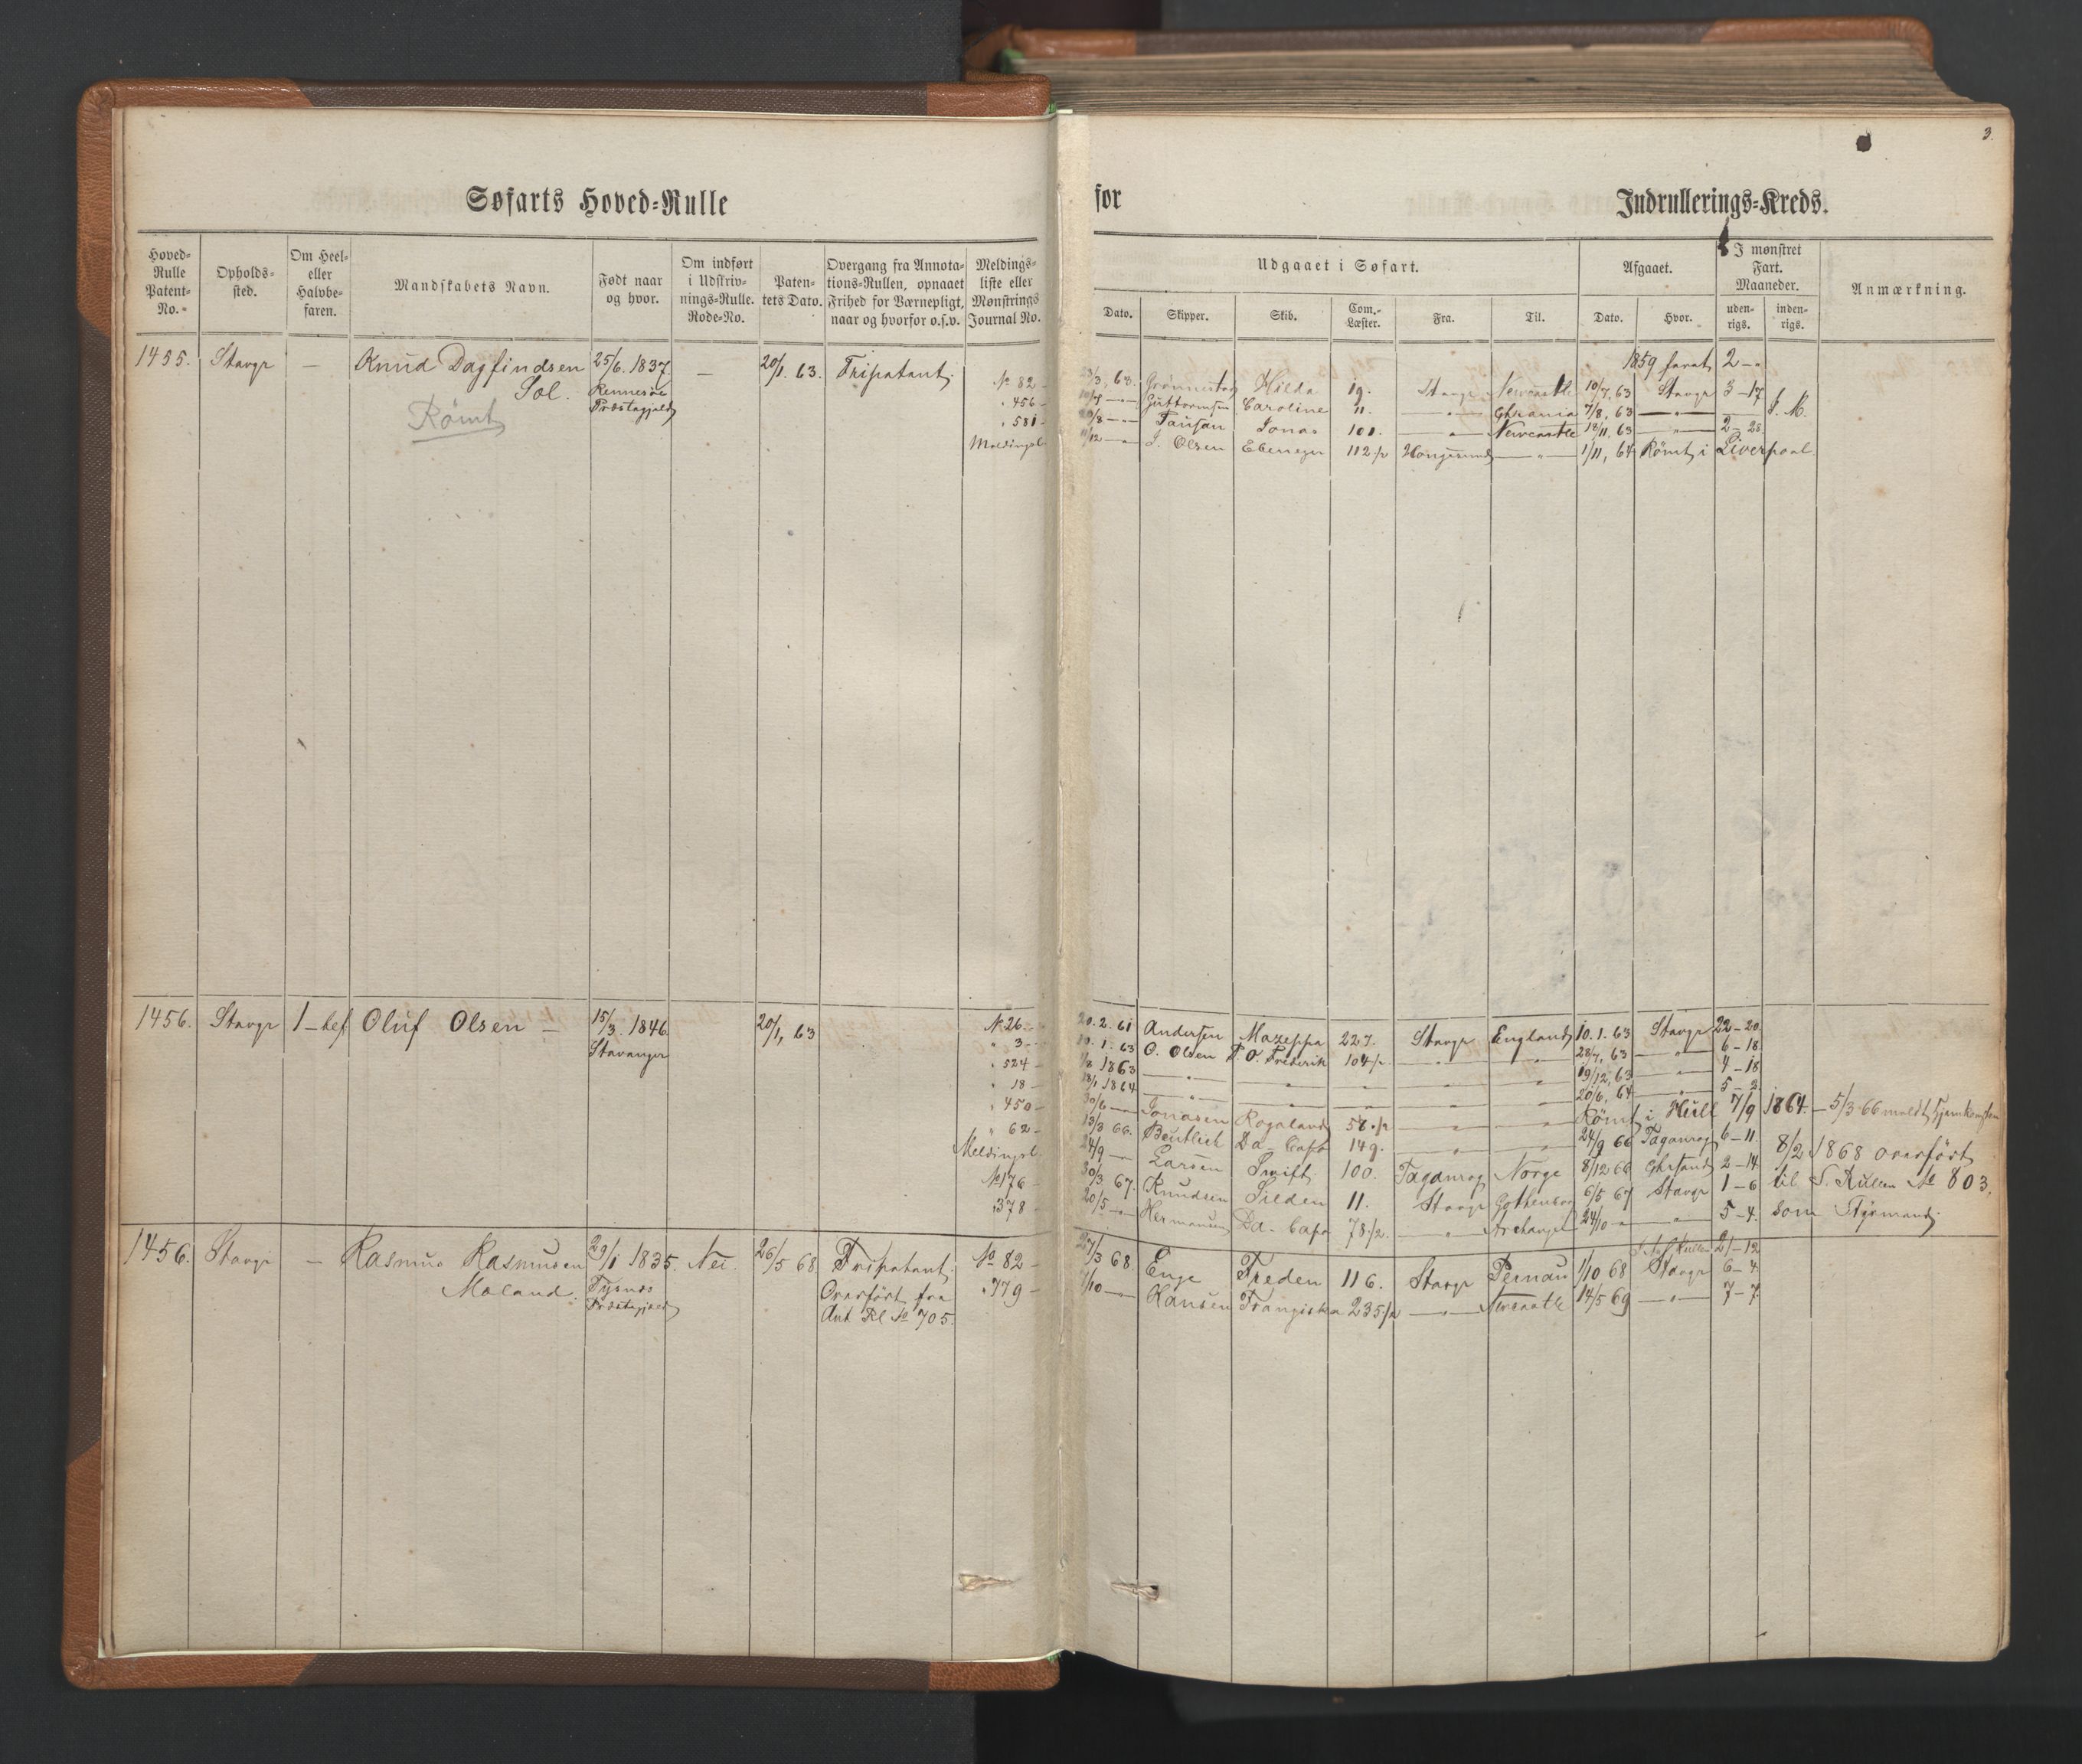 3.
Søfarts Hoved-Rulle for Indrullerings-Kreds.
Hoved-Rulle Patent-No.- Opholds-sted. Om Heel- eller Halvbe-faren. Mandskabets Navn. Født naar og hvor. Om indført i Udskriv-nings-Rulle. Rode-No. Paten-tets Dato. Overgang fra Annota-tions-Rullen, opnaaet Frihed for Værnepligt, naar og hvorfor o.s.v. Meldings-liste eller Mønstrings Journal No.
Udgaaet i Søfart. Afgaaet. I mønstret Fart. Maaneder. Anmærkning.
Dato. Skipper. Skib. Com.-Læster. Fra. Til. Dato. Hvor. uden-rigs. inden-rigs.
1455. Stavgr — Knud Dagfindsen 25/6. 1837 — 20/1. 63. Fripatent 1859 faret 2 - "
Sol. Rennesøe № 82 - Hilda 19. Stavgr Newcastle 10/7, 63 Stavgr 3 - 17
Römt Præstegjeld " 456 - Guttormsen Caroline 11. —"— Chrania 7/8, 63 —"—
" 581 - 29/8 -"- Jonas 101. —"— Newcastle 18/11. 63 —"— 2 - 28
Meldingsl. J. Olsen Ebeneger 112 1/2 —"— 1/11, 64 Römt i Liverpool.
1456. Stavgr 1 - bef Oluf Olsen — 15/3. 1846 20/1, 63 № 26 - 20. 2. 61 Andersen Mazeppa 227. Stavgr England 10. 1. 63 Stavgr 22 - 20
Stavanger " 3 - 19. 1. 63 O. Olsen P. O. Frederik 104 1/2 —"— —"— 28/7, 63 —"— 6 - 18
" 524 - 1/8 1863 —"— —"— —"— —"— 19/12, 63 —"— 4 - 18
" 18 - 18/1 1864 —"— —"— —"— —"— 20/6, 64 —"— 5 - 2
" 450 - 30/6 -"- Jonasen Rogaland 58 1/2 —"— —"— Römt i Hull 7/9 1864. - 5/3 66 meldt Hjemkomsten
" 62 - 13/3 66. Bentlich Da-Capo 149. —"— —"— 24/9 66 Taganrog 6 - 11. 8/2 1868 overført
Meldingsl. 24/9 -"- Larsen Swift 100. Taganrog Norge 8/12 66 Chrsand 2 - 14 til S. Rullen № 803,
№ 176 - 30/3 67. Knudsen Silden 11. Stavgr Gothenborg 6/5 67 Stavgr 1 - 6
" 378 - 20/5 -"- Hermansen Da-Capo 78 1/2. —"— Archangel 24/10 -"- —"— 5 - 4. som Styrmand.
1456. Stavgr — Rasmus Rasmusen 29/1 1835. Nei. 26/5 68 Fripatent. № 82 - 27/3 68. Enge Freden 116. Stavgr Pernau 1/10 68 Stavgr 6 - 4
2 - 12
Mæland. Tysnes Overført fra " 779 - 7/10 -"- Hansen Frangiska 235 1/2 —"— Newcastle 14/5 69 —"— 7 - 7
Præstegjeld Ant Rl № 705.